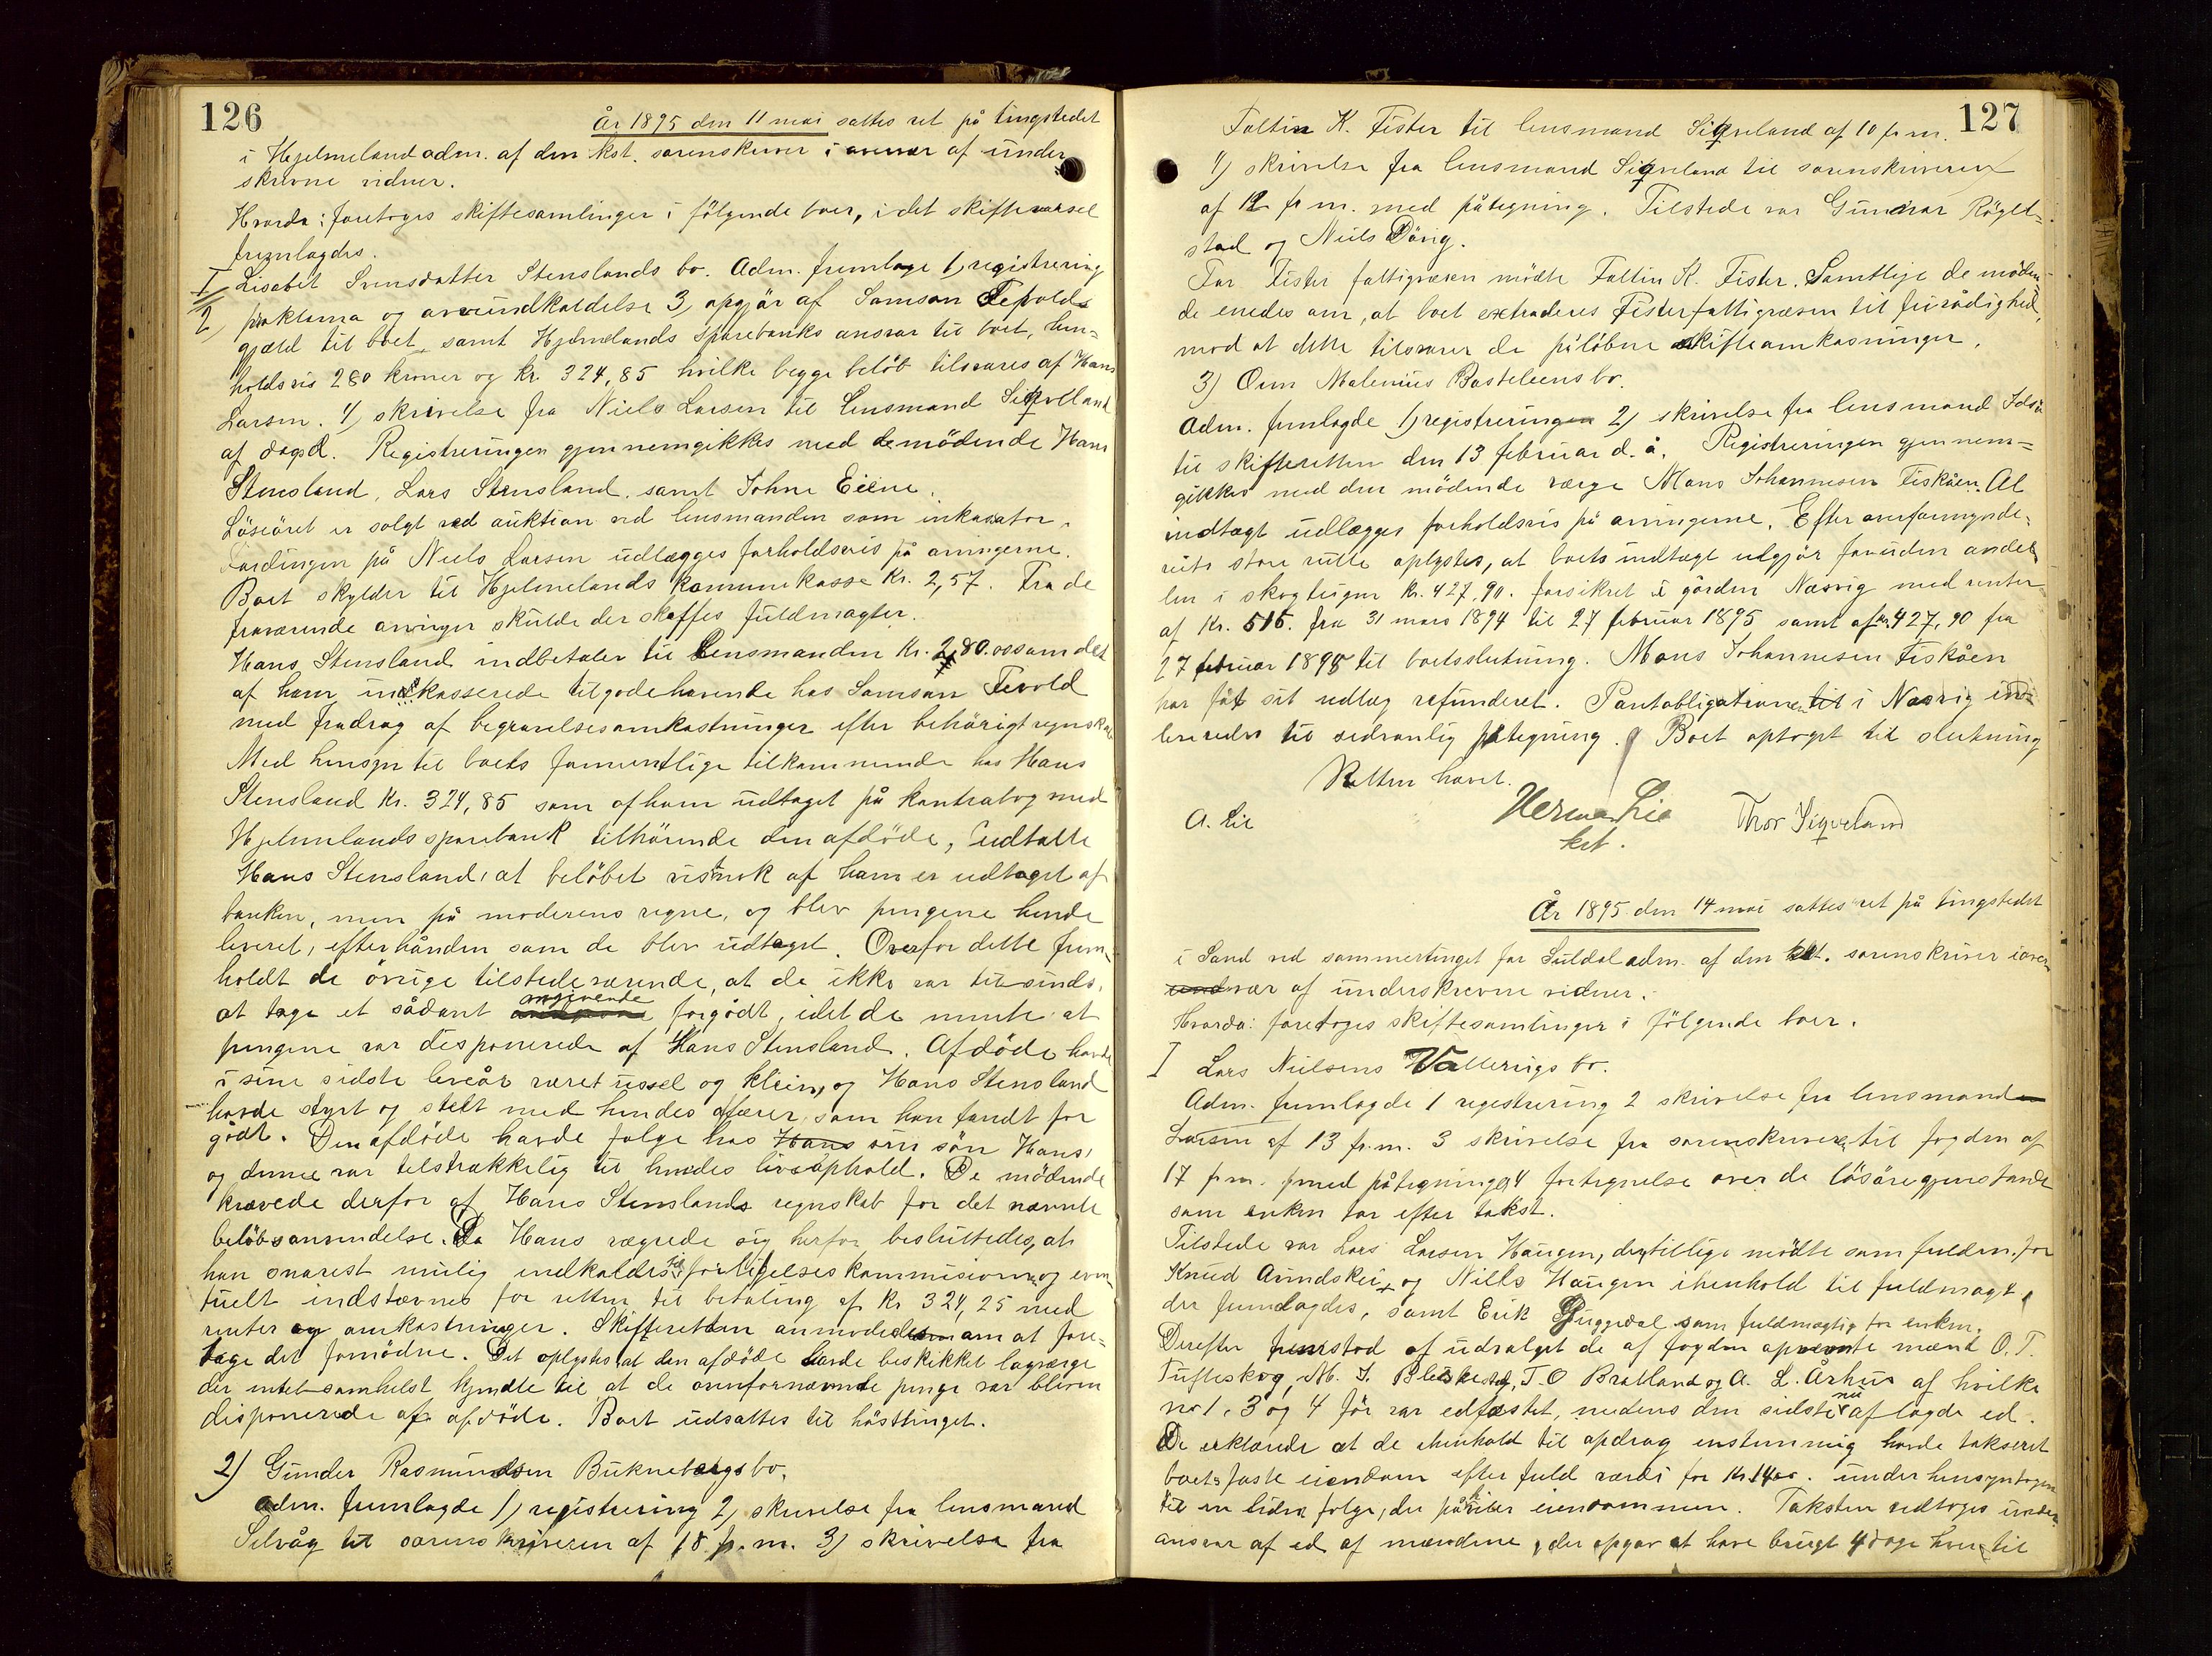 126
År 1895 den 11 mai sattes ret på tingstedet
i Hjelmeland adm. af den kst. sorenskriver i overvær af under
skrevne vidner.
Hvorda: foretoges skiftesamlinger i følgende boer, i det skiftevarsel
fremlagdes.
I Lisabet Svensdatter Stenslands bo. Adm. fremlage 1) registrering
2) proklama og arveindkaldelse 3) opgjör af Samson Tefvolds
gjæld til boet, samt Hjelmelands sparebanks ansvar til boet, hen=
holdsvis 280 kroner og kr. 324,85 hvilke begge belöb tilsvares af Hans
Larsen. 4) skrivelse fra Niels Larsen til lensmand Siqveland
af dags d. Registreringen gjennemgikkes med de mödende Hans
Stensland, Lars Stensland, samt Johne Eiene.
Lösöret er solgt ved auktion ved lensmanden som inkasator.
Fordingen på Niels Larsen udlægges forholdsvis på arvingerne.
Boet skylder til Hjelmelands kommunekasse Kr. 2,57. Fra de
fraværende arvinger skulde der skaffes fuldmagter.
Hans Stensland indbetaler til Lensmanden Kr. 280.00 som det
af ham indkasserede tilgodehavende hos Samson Tevold
med fradrag af begravelsesomkostninger efter behörigt regnskab
Med hensyn til boets formentlige tilkommende hos Hans
Stensland Kr. 324,85 som af ham udtaget på kontrabog med
Hjelmelands sparebank tilhörende den afdöde, udtalte
Hans Stensland, at belöbet vistnok af ham er udtaget af
banken, men på moderens regne, og blev pengene hende
leveret, efterhånden som de blev udtaget. Overfor dette frem=
holdt de övrige tilstedeværende, at de ikke var til sinds,
at tage et sådant angivende forgodt, idet de mente at
pengene var disponerede af Hans Stensland. Afdöde havde
i sine sidste leveår været ussel og klein, og Hans Stensland
havde styrt og stelt med hendes affærer som han fandt for
godt. Den afdöde havde folge hos Hans sin sön Hans,
og denne var tilstrækkelig til hendes livsophold. De mödende
krævede derfor af Hans Stenslands regnskab for det nævnte
belöbs anvendelse. Da Hans vægrede sig herfor besluttedes, at
han snarest mulig indkaldes til forligelseskommisionen og even
tuelt indstævnes for retten til betaling af Kr 324,25 med
renter og omkostninger. Skifteretten anmodedes om at fore=
tage det fornödne. Det oplystes, at den afdöde havde beskikket lagværge
der intetsomhelst kjendte til at de ovenfornævnte penge var bleven
disponerede af afdöde. Boet udsattes til hösttinget.
2) Gunder Rasmundsen Buknebergs bo.
Adm. fremlagde 1) registrering 2) skrivelse fra lensmand
Selvåg til sorenskriveren af 18. f. m. 3) skrivelse fra
127
Faltin K. Fister til lensmand Siqveland af 10 f. m.
4) skrivelse fra lensmand Siqveland til sorenskriveren
af 12 f. m. med påtegning. Tilstede var Gunnar Rögel=
stad og Niels Dörig.
For Fister fattigvæsen mödte Faltin K. Fister. Samtlige de möden=
de enedes om, at boet extraderes Fister fattigvæsen til fri rådighed,
mod at dette tilsvarer de påløbne skifteomkosninger.
3) Oven Malenius Basteleens bo.
Adm. fremlagde 1) registreringen 2) skrivelse fra lensmand Idsö
til skifteretten den 13 februar d. å. Registreringen gjennem=
gikkes med den mödende værge Mons Johannesen Fiskåen. Al
indtægt udlægges forholdsvis på arvingerne. Efter overformynde=
riets store rulle oplystes, at boets indtægt udgjör foruden andel
len i skogteigen Kr. 427,90. forsikret i gården Næsvig med renter
af Kr. 515. fra 31 mars 1894 til 27 februar 1895 samt af kr. 427,90 fra
27 februar 1895 til boetsslutning. Mons Johannesen Fiskåen
har fåt sit udlæg refunderet. Pantobligationen til i Næsvig ind
leveredes til sedvanlig påtegning. Boet optoges til slutning
Retten hævet.
A. Lie
Herman Lie
kst.
Thor Siqveland
År 1895 den 14 mai sattes ret på tingstedet
i Sand ved sommertinget for Suldal adm. af den kst. sorenskriver i over
vær af underskrevne vidner.
Hvorda: foretoges skiftesamlinger i følgende boer.
I Lars Nielsens Vallerigs bo.
Adm. fremlagde 1 registrering 2 skrivelse fra lensmand
Larsen af 13 f. m. 3 skrivelse fra sorenskriveren til fogden af
17 f. m. med påtegninge, 4 fortegnelse over de lösöregjenstande
som enken tar efter takst.
Tilstede var Lars Larsen Haugen, der tillige mödte som fuldm. for
Knud Aundskei og Nills Haugen i henhold til fuldmagt
der fremlagdes, samt Erik Guggedal som fuldmægtig for enken.
Derefter fremstod af udvalget de af fogden opnevnte mænd O. T.
Tufteskog, M. J. Bleskestad, T. O Bratland og A. L. Århus af hvilke
no 1, 3 og 4 för var edfæstet, medens den sidste nu aflagde ed.
De erklærede at de i henhold til opdrag enstemmig havde takseret
boets faste eiendom efter fuld værdi for Kr. 1400. under hensyntagen
til en liden folge, der påhviler eiendommen. Taksten vedtoges under
ansvar af ed af mændene, der opgav at have brugt 4 dage hver til